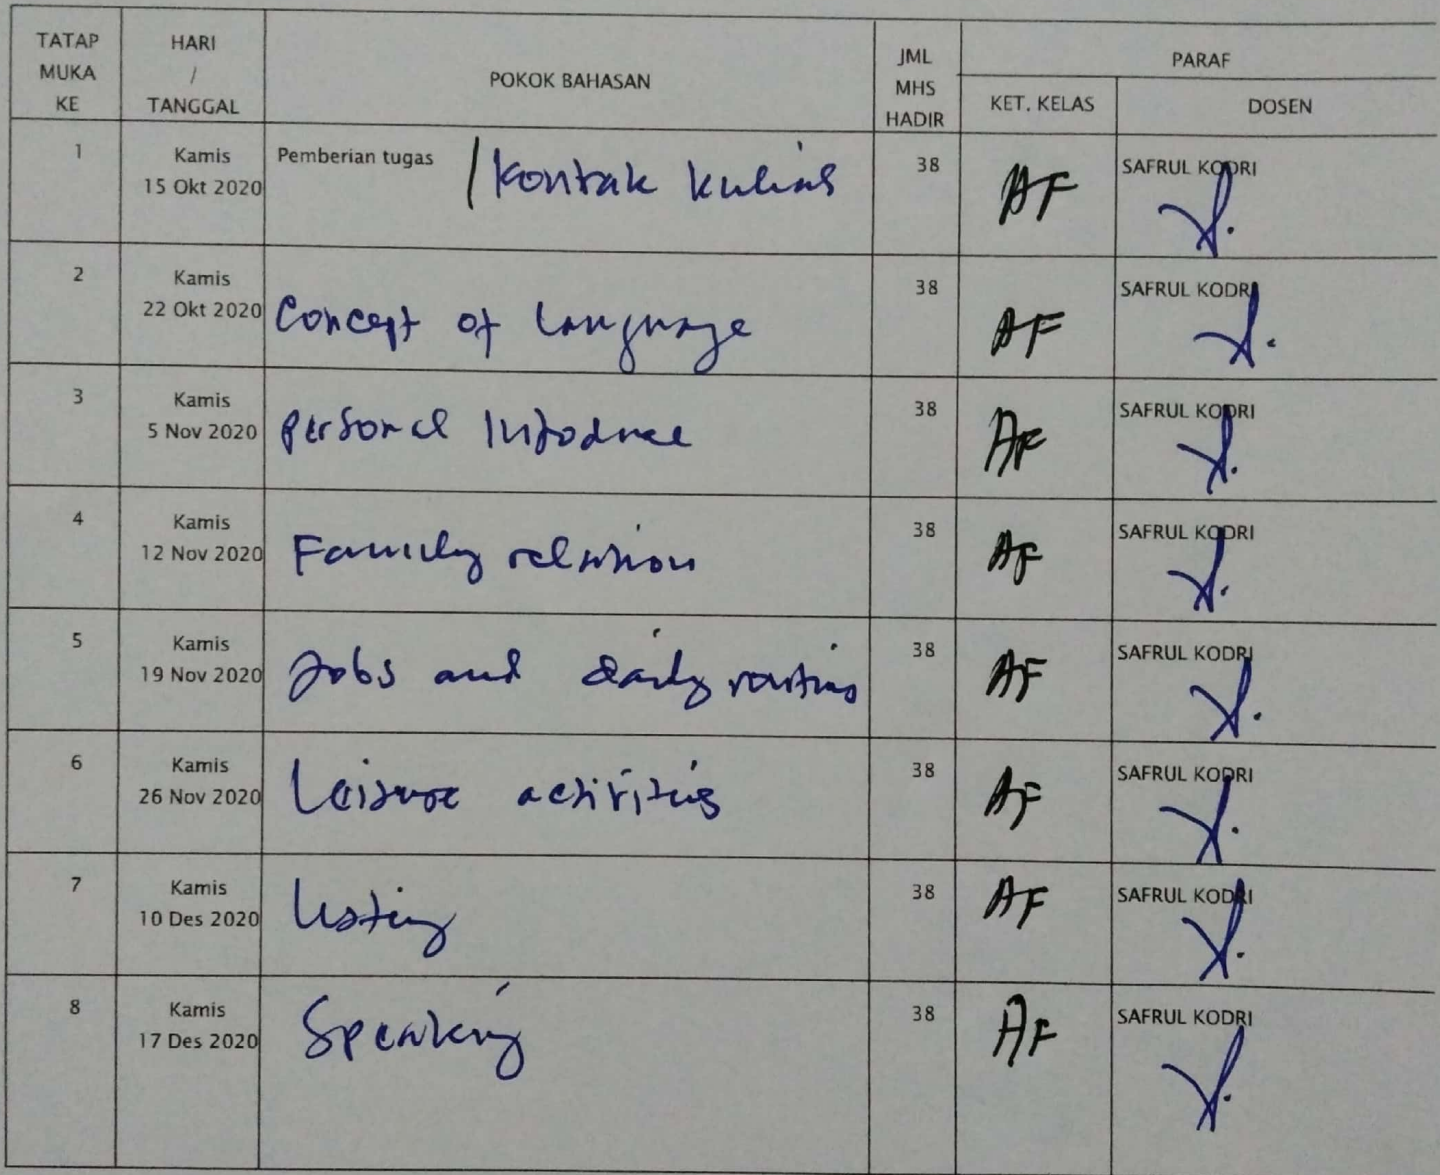 TATAP MUKA KE
HARI / TANGGAL
POKOK BAHASAN
JML MHS HADIR
PARAF
KET. KELAS
DOSEN
1 Kamis 15 Okt 2020 Pemberian tugas / Kontak kuliah 38 AF SAFRUL KODRI
2 Kamis 22 Okt 2020 Concept of Language 38 AF SAFRUL KODRI
3 Kamis 5 Nov 2020 Personal Introduce 38 AF SAFRUL KODRI
4 Kamis 12 Nov 2020 Family relation 38 AF SAFRUL KODRI
5 Kamis 19 Nov 2020 Jobs and daily routins 38 AF SAFRUL KODRI
6 Kamis 26 Nov 2020 Leisure activities 38 AF SAFRUL KODRI
7 Kamis 10 Des 2020 38 AF SAFRUL KODRI
8 Kamis 17 Des 2020 Speaking 38 AF SAFRUL KODRI